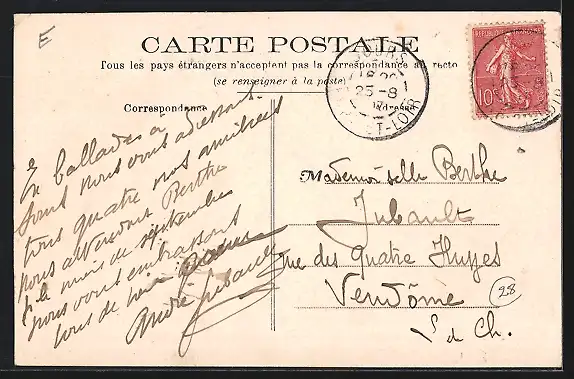 E
CARTE POSTALE
Tous les pays étrangers n'acceptent pas la correspondance au recto
(se renseigner à la poste)
Correspondance
Adresse
TOURS
25-8
ET-LOIRE
10
En ballades à
Tours nous vous adressons
tous quatre nos amitiés
nous attendons Berthe
le mois de septembre
nous vous embrassons
tous de
André Jubault
Mademoiselle Berthe
Jubault
rue des Quatre Huyes
Vendôme
L &amp; Ch.
28